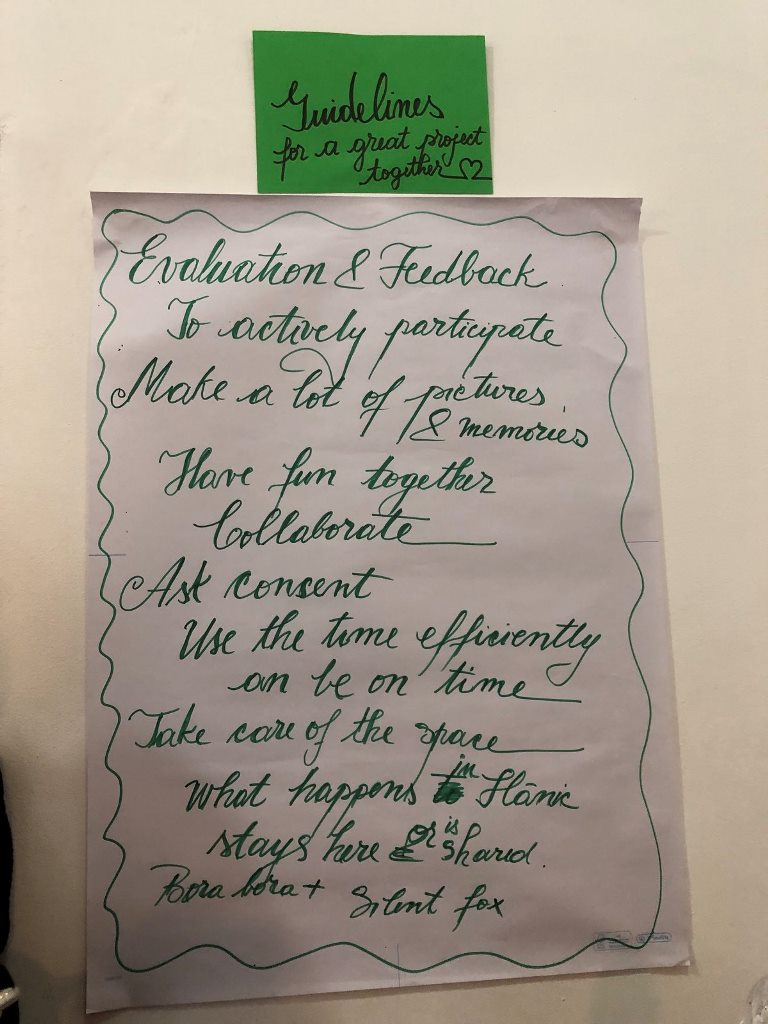 Guidelines
for a great project
together
Evaluation & Feedback
To actively participate
Make a lot of pictures
& memories
Have fun together
Collaborate
Ask consent
Use the time efficiently
an be on time
Take care of the space
What happens in Hănic
stays here or is shared.
Bora bora + Silent fox